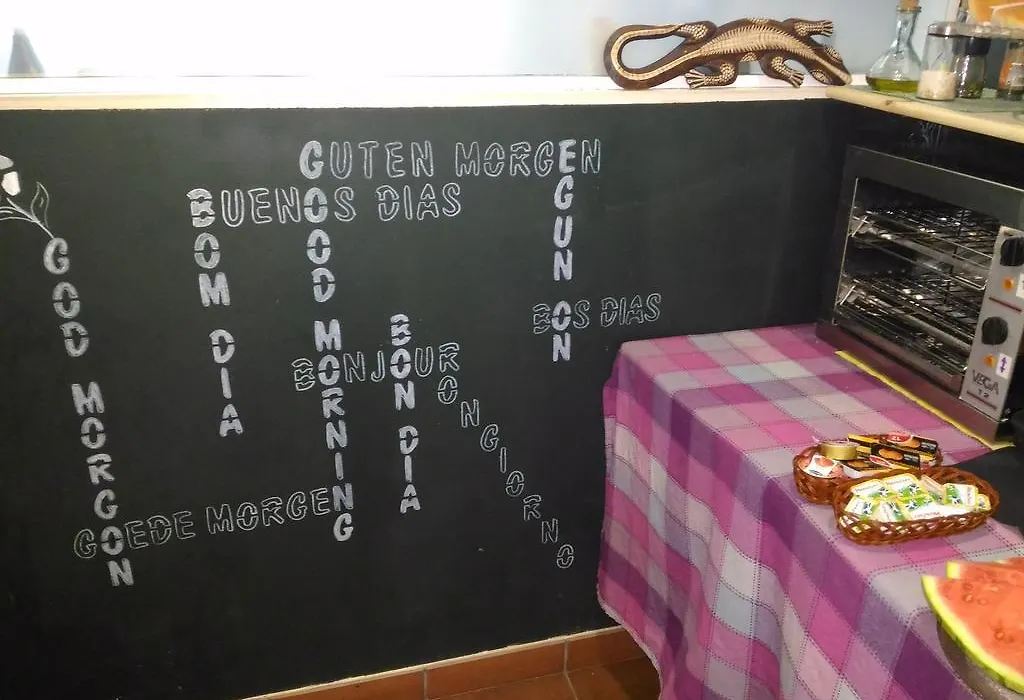 GUTEN MORGEN
BUENOS DIAS
GOD MORGON
BOM DIA
GOOD MORNING
EGUN ON
BOS DIAS
BONJOUR
BON DIA
BONGIORNO
GOEDE MORGEN
VEGA
T2